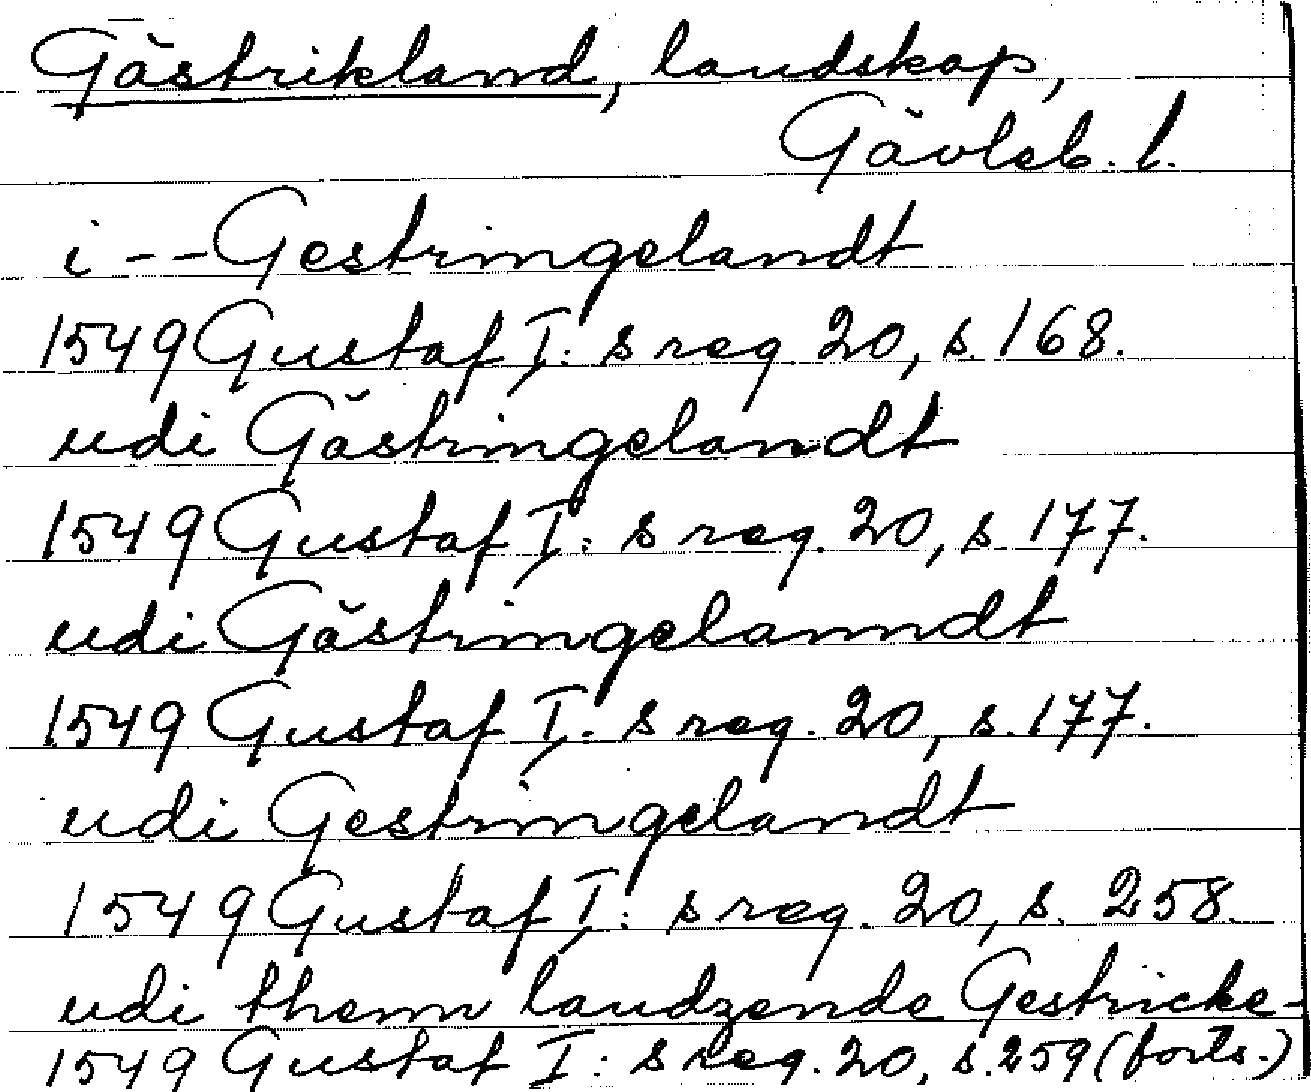 Gästrikland, landskap,
Gävleb. l.
i -- Gestringelandt
1549 Gustaf I: s reg. 20, s. 168.
udi Gästringelandt
1549 Gustaf I: s reg. 20, s. 177.
udi Gästringelanndt
1549 Gustaf I: s reg. 20, s. 177.
udi Gestringelandt
1549 Gustaf I: s reg. 20, s. 258.
udi them landzende Gestricke-
1549 Gustaf I: s reg. 20, s. 259 (forts.)